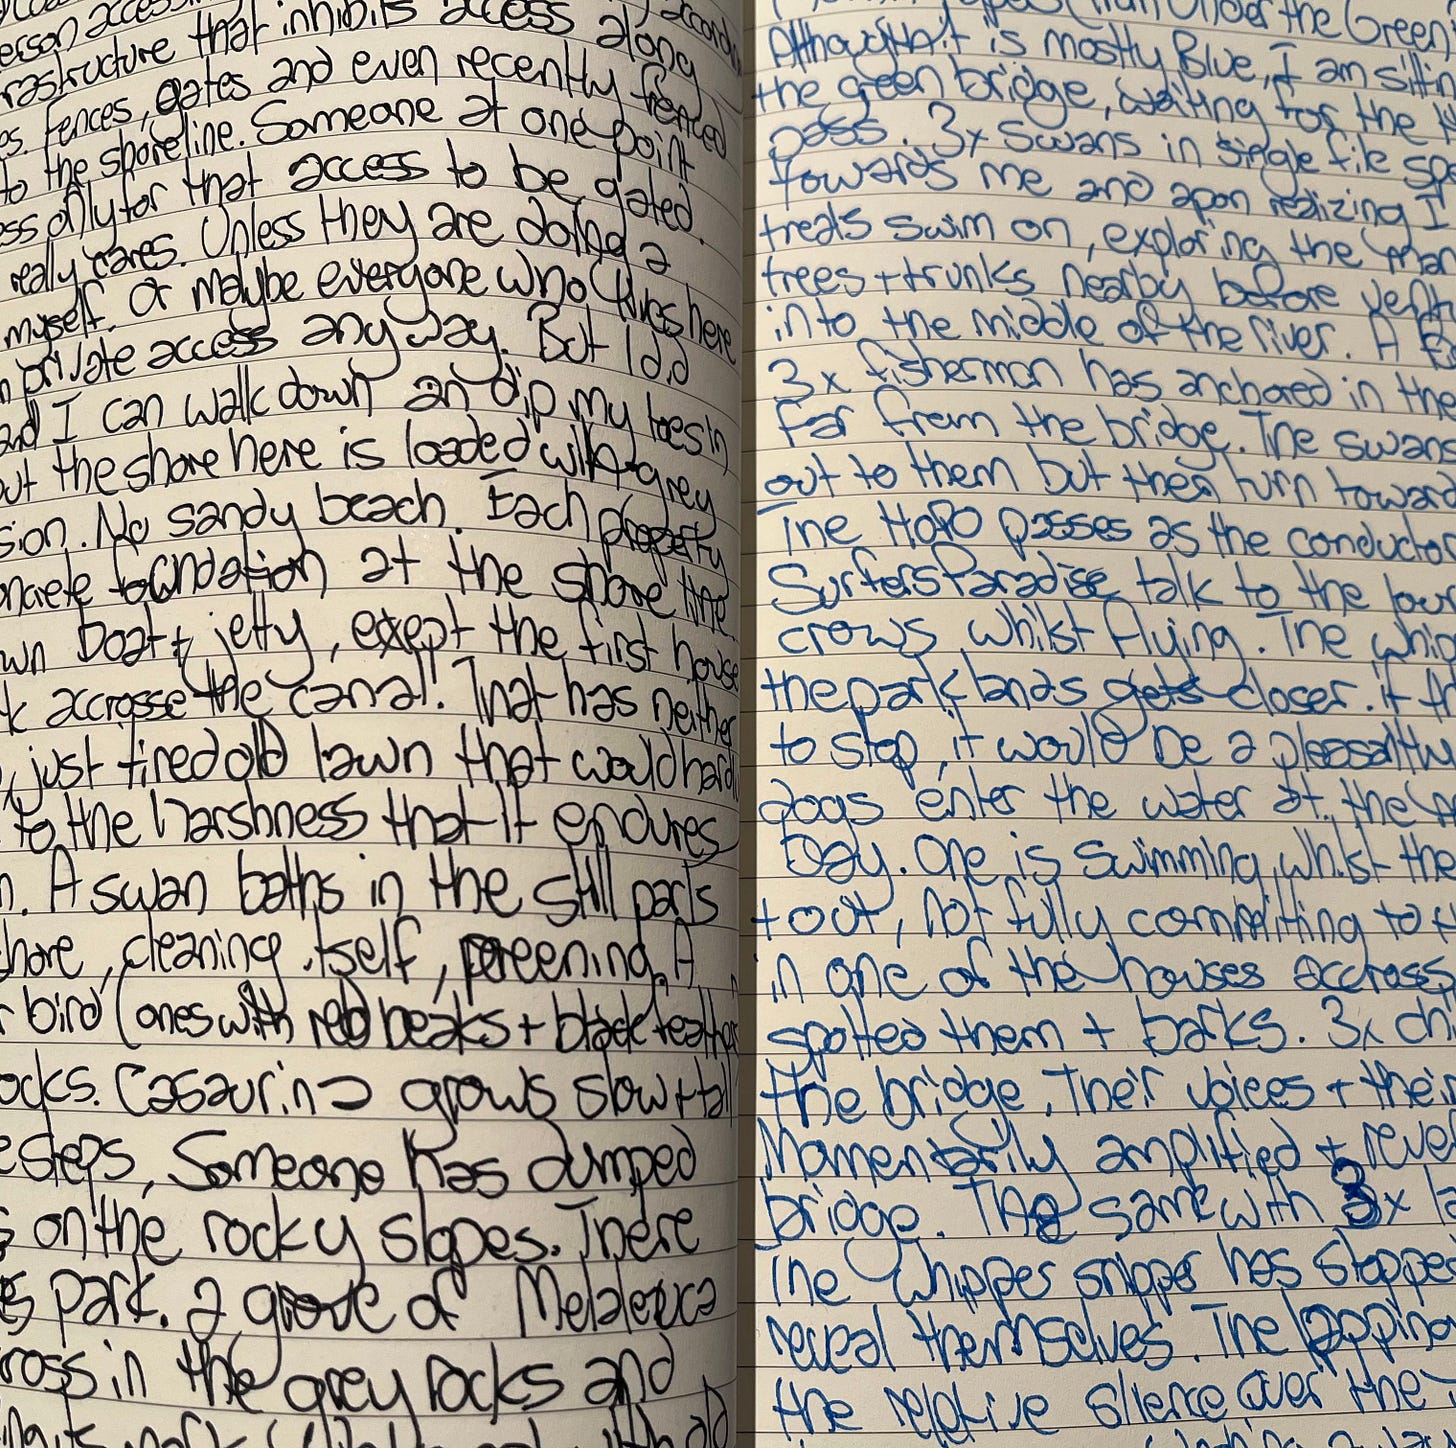 erson access
rastructure that inhibits access along
es. Fences, gates and even recently fenced
to the shoreline. Someone at one point
ess only for that access to be gated.
really cares. Unless they are doing a
myself. Or maybe everyone who lives here
n private access anyway. But I did
and I can walk down an dip my toes in
out the shore here is loaded with grey
sion. No sandy beach. Each property
oncrete foundation at the shore line
wn boat + jetty, except the first house
k accrosse the canal! That has neither
just tired old lawn that would hardl
to the harshness that it endures
n. A swan baths in the still parts
hore, cleaning itself, preening. A
r bird (ones with red beaks + black feathers
ocks. Casaurina grows slow + tal
e steps, Someone has dumped
s on the rocky slopes. There
es park. a grove of Melaleuca
ross in the grey rocks and
under the Green
Although it is mostly Blue, I am sittin
the green bridge, waiting for the
pass. 3x Swans in single file sp
towards me and apon realizing I
treats swim on, exploring the man
trees + trunks nearby before vent
into the middle of the river. A
3x fisherman has anchored in the
far from the bridge. The swans
out to them but then turn toward
The HoPo passes as the conductor
Surfers Paradise talk to the lou
crows whilst flying. The whip
the parklands gets closer. if
to stop, it would be a pleasantly
dogs enter the water at the
Day. One is swimming, whilst the
+ out, not fully committing to
in one of the houses accross
spotted them + barks. 3x ch
the bridge. Their voices + their
Momentarily amplified + rever
bridge. The same with 3x
The Whipper snipper has stopped
reveal themselves. The lapping
the relative silence over the